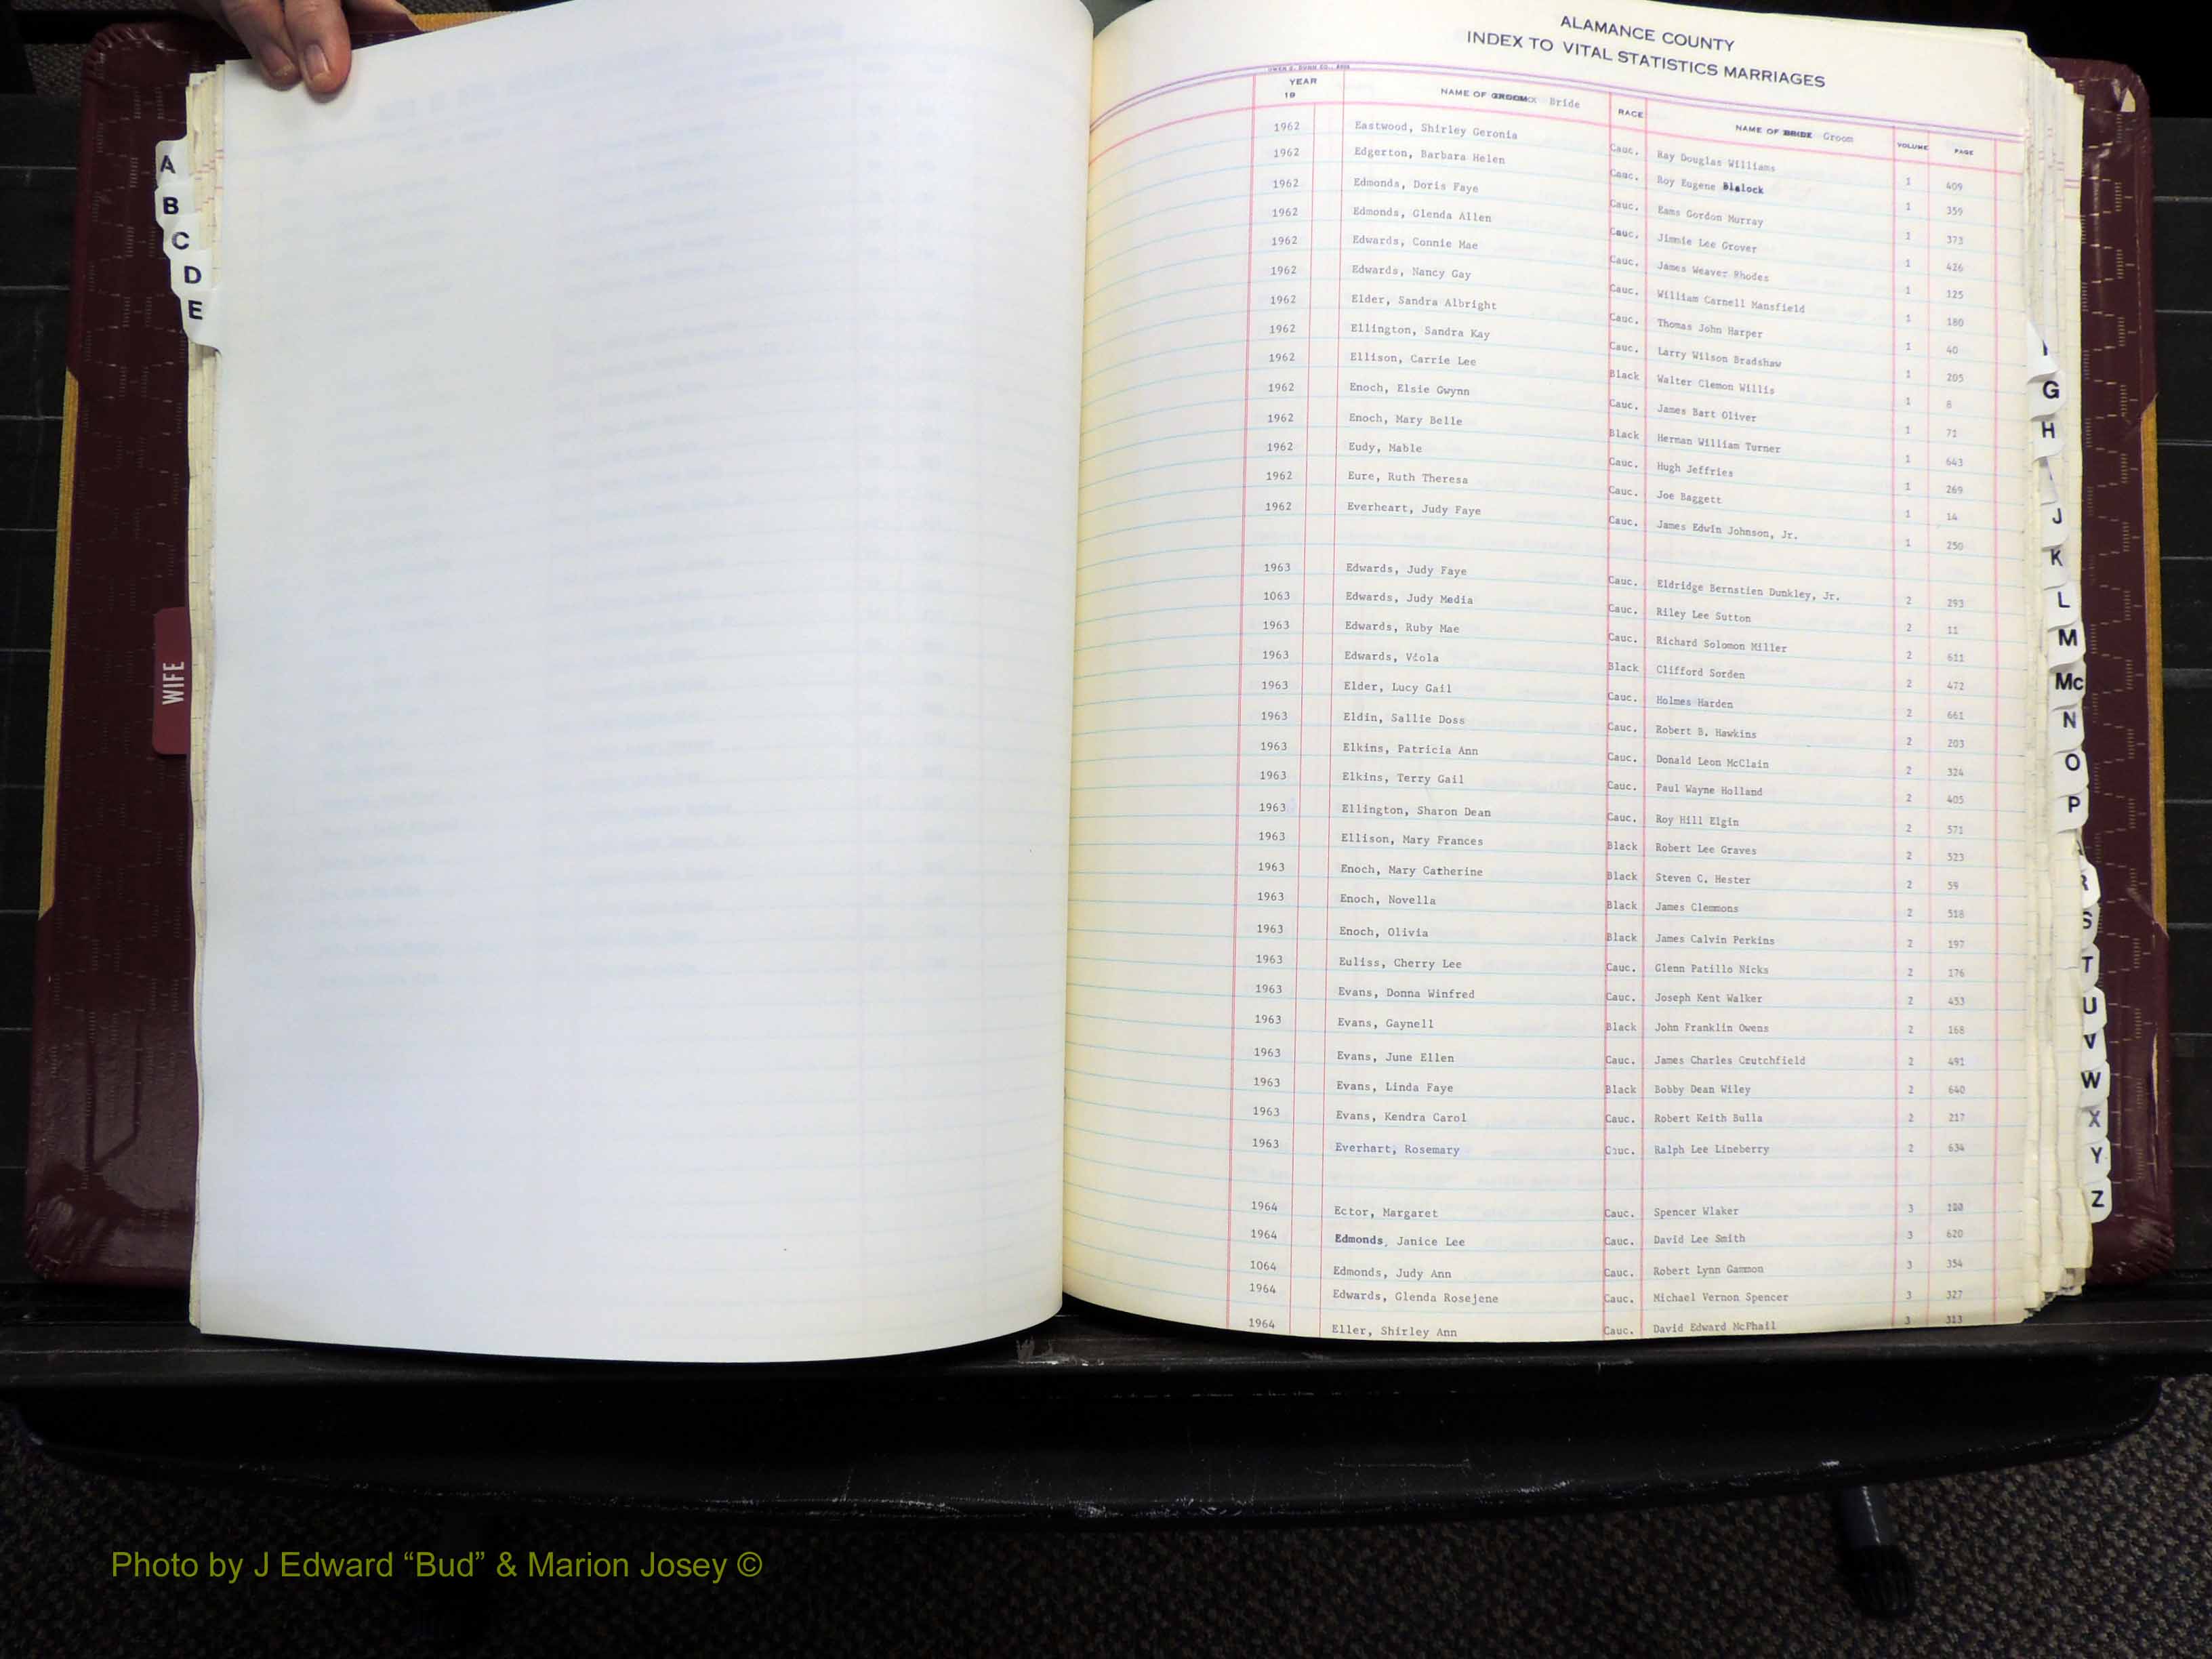 ALAMANCE COUNTY
INDEX TO VITAL STATISTICS MARRIAGES
YEAR 19 NAME OF GROOM Bride RACE NAME OF BRIDE Groom VOLUME PAGE
1962 Eastwood, Shirley Geronia Cauc. Ray Douglas Williams 1 409
1962 Edgerton, Barbara Helen Cauc. Roy Eugene Blalock 1 359
1962 Edmonds, Doris Faye Cauc. Eams Gordon Murray 1 373
1962 Edmonds, Glenda Allen Cauc. Jimmie Lee Grover 1 426
1962 Edwards, Connie Mae Cauc. James Weaver Rhodes 1 125
1962 Edwards, Nancy Gay Cauc. William Carnell Mansfield 1 180
1962 Elder, Sandra Albright Cauc. Thomas John Harper 1 40
1962 Ellington, Sandra Kay Cauc. Larry Wilson Bradshaw 1 205
1962 Ellison, Carrie Lee Black Walter Clemon Willis 1 8
1962 Enoch, Elsie Gwynn Cauc. James Bart Oliver 1 71
1962 Enoch, Mary Belle Black Herman William Turner 1 643
1962 Eudy, Mable Cauc. Hugh Jeffries 1 269
1962 Eure, Ruth Theresa Cauc. Joe Baggett 1 14
1962 Everheart, Judy Faye Cauc. James Edwin Johnson, Jr. 1 250
1963 Edwards, Judy Faye Cauc. Eldridge Bernstien Dunkley, Jr. 2 293
1063 Edwards, Judy Media Cauc. Riley Lee Sutton 2 11
1963 Edwards, Ruby Mae Cauc. Richard Solomon Miller 2 611
1963 Edwards, Viola Black Clifford Sorden 2 472
1963 Elder, Lucy Gail Cauc. Holmes Harden 2 661
1963 Eldin, Sallie Doss Cauc. Robert B. Hawkins 2 203
1963 Elkins, Patricia Ann Cauc. Donald Leon McClain 2 324
1963 Elkins, Terry Gail Cauc. Paul Wayne Holland 2 405
1963 Ellington, Sharon Dean Cauc. Roy Hill Elgin 2 571
1963 Ellison, Mary Frances Black Robert Lee Graves 2 523
1963 Enoch, Mary Catherine Black Steven C. Hester 2 59
1963 Enoch, Novella Black James Clemmons 2 518
1963 Enoch, Olivia Black James Calvin Perkins 2 197
1963 Euliss, Cherry Lee Cauc. Glenn Patillo Nicks 2 176
1963 Evans, Donna Winfred Cauc. Joseph Kent Walker 2 453
1963 Evans, Gaynell Black John Franklin Owens 2 168
1963 Evans, June Ellen Cauc. James Charles Crutchfield 2 491
1963 Evans, Linda Faye Black Bobby Dean Wiley 2 640
1963 Evans, Kendra Carol Cauc. Robert Keith Bulla 2 217
1963 Everhart, Rosemary Cauc. Ralph Lee Lineberry 2 634
1964 Ector, Margaret Cauc. Spencer Wlaker 3
1964 Edmonds, Janice Lee Cauc. David Lee Smith 3 620
1064 Edmonds, Judy Ann Cauc. Robert Lynn Gammon 3 354
1964 Edwards, Glenda Rosejene Cauc. Michael Vernon Spencer 3 327
1964 Eller, Shirley Ann Cauc. David Edward McPhail 3 313
A
B
C
D
E
WIFE
G
H
J
K
L
M
Mc
N
O
P
R
S
T
U
V
W
X
Y
Z
Photo by J Edward “Bud” & Marion Josey ©